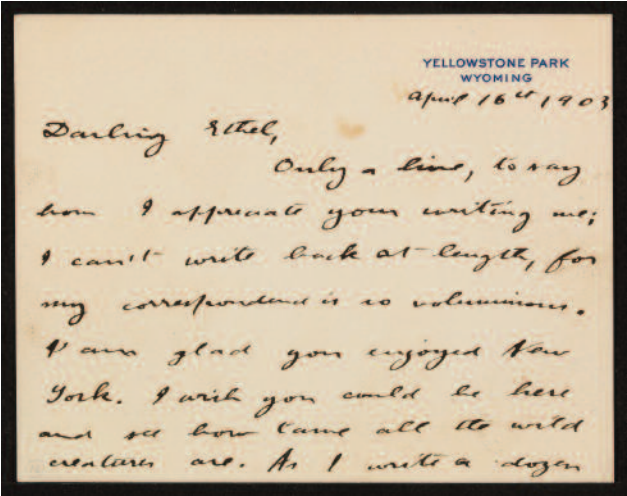 YELLOWSTONE PARK
WYOMING
April 16th 1903
Darling Ethel,
Only a line, to say
how I appreciate your writing me;
I can't write back at length, for
my correspondence is so voluminous.
I am glad you enjoyed New
York. I wish you could be here
and see how tame all the wild
creatures are. As I write a dozen